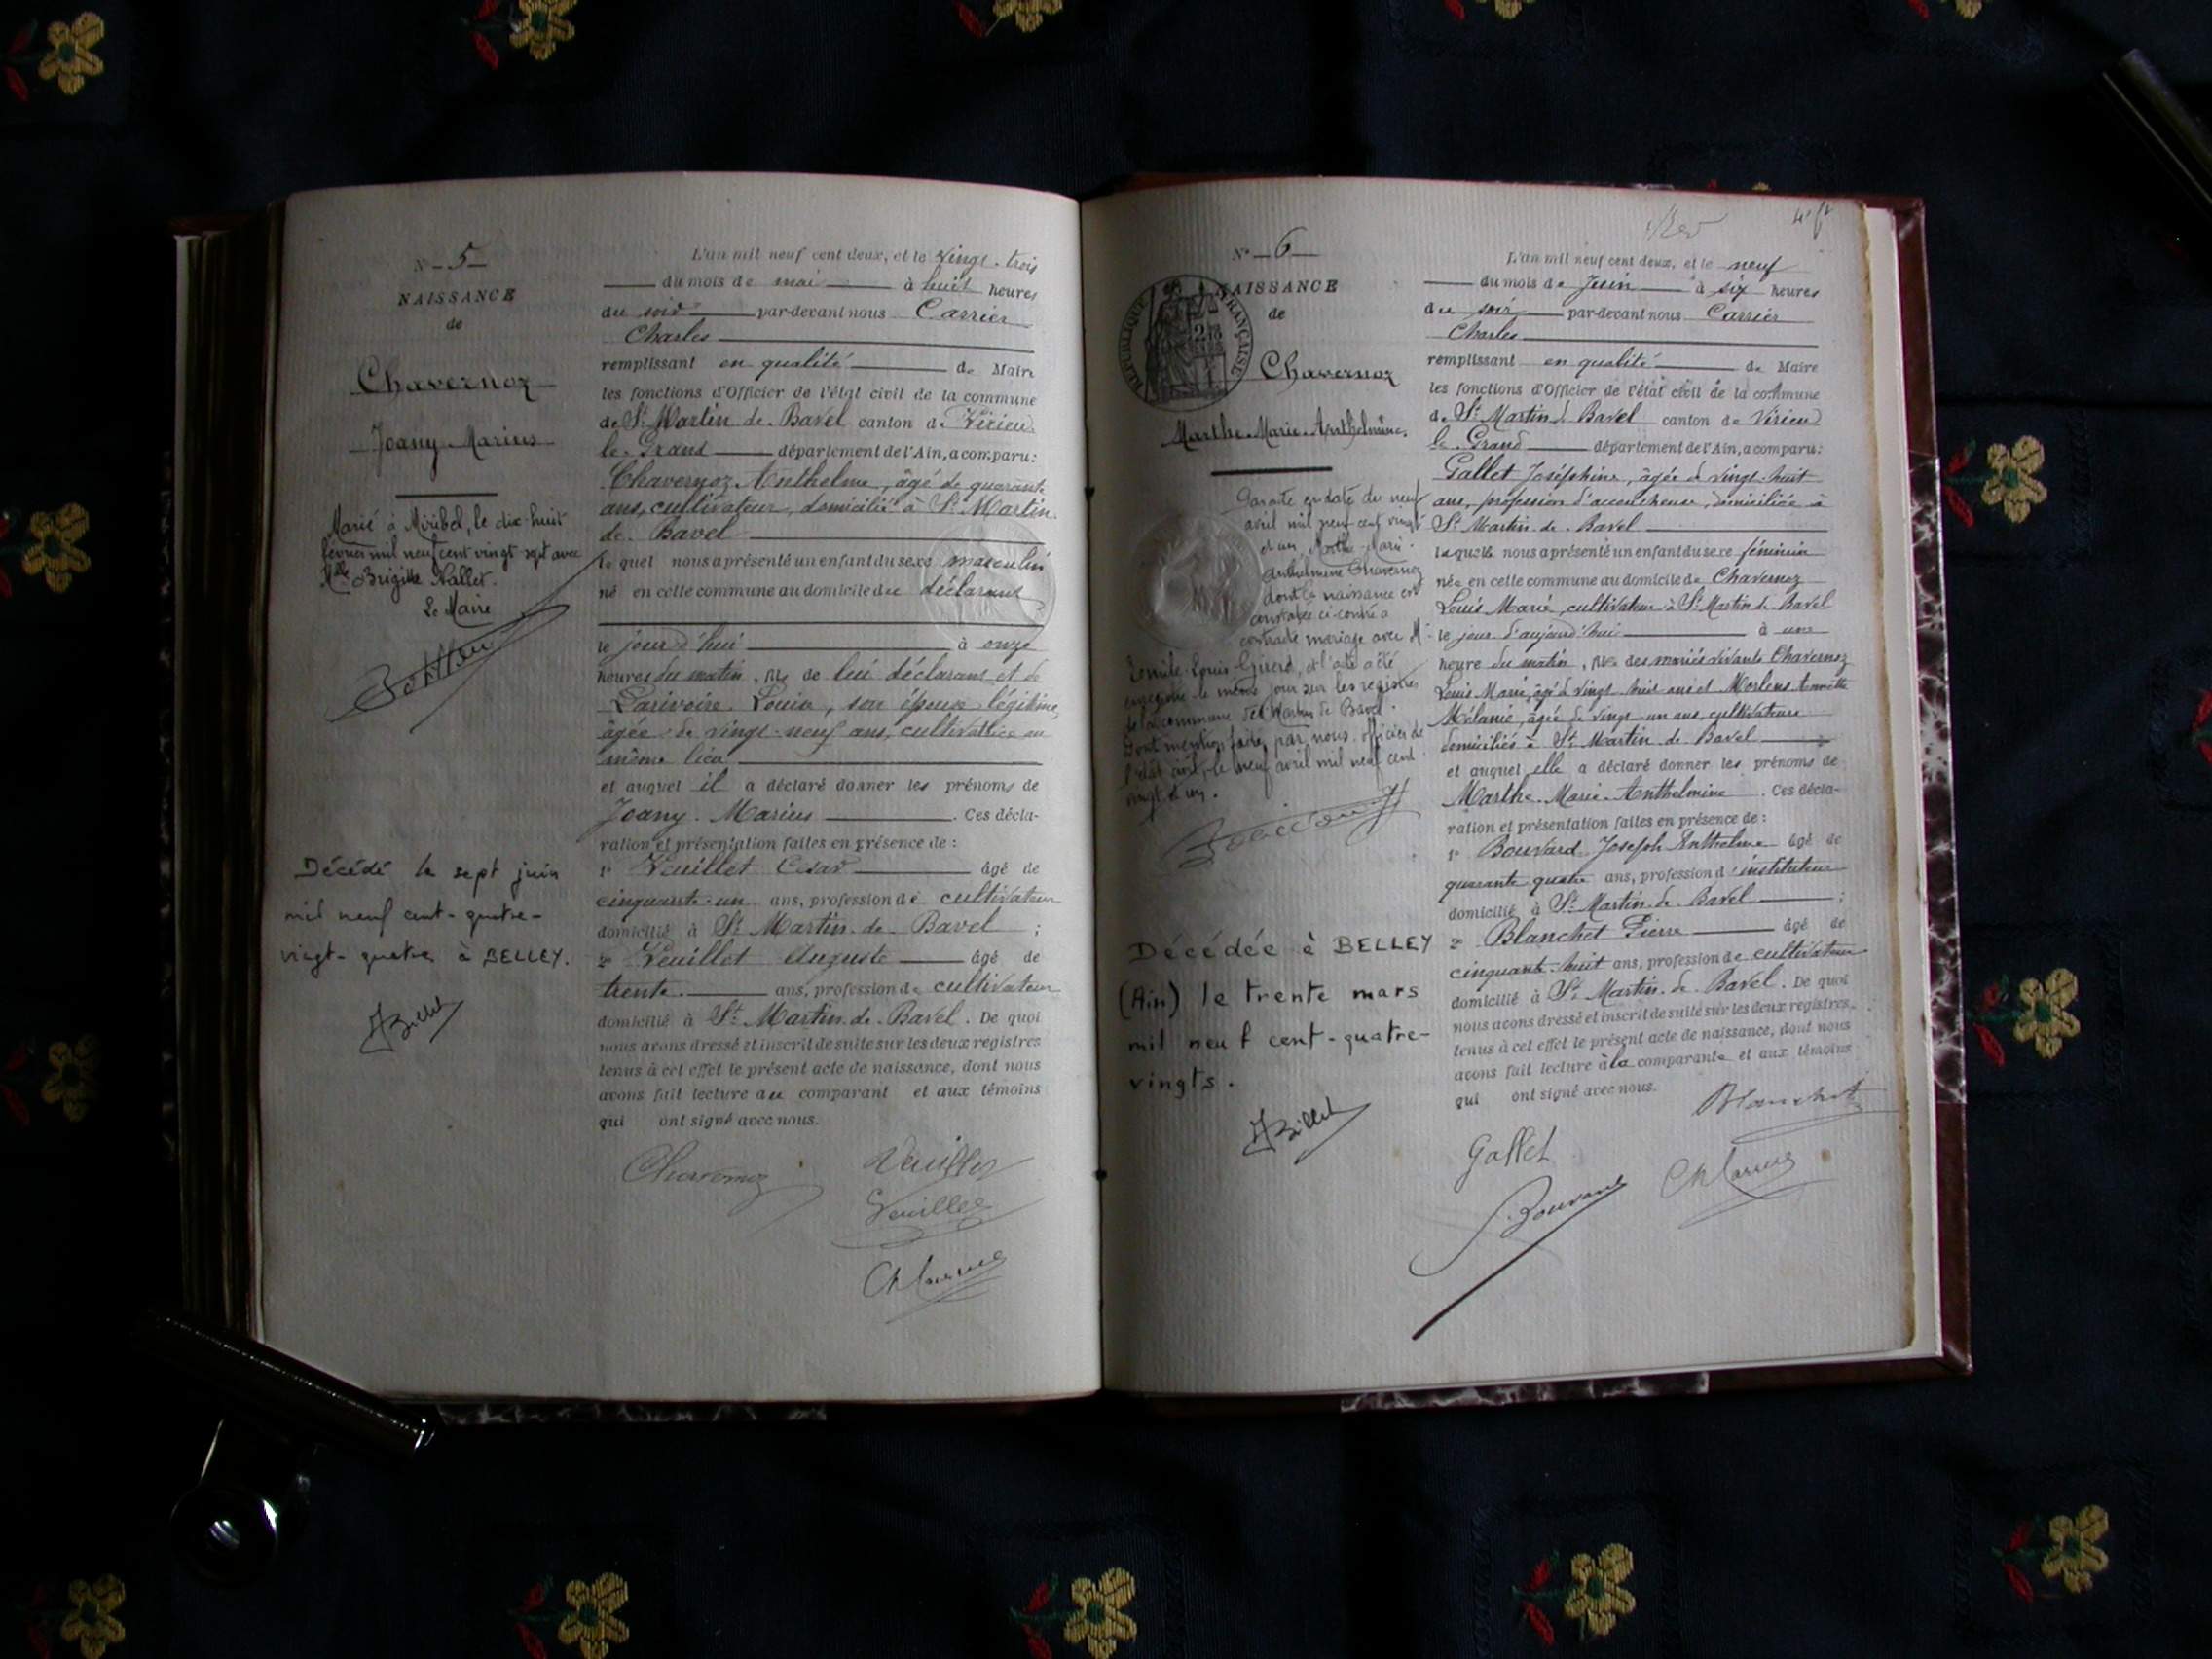 N° 5
NAISSANCE
de
Chavernoz
Joany Marius
Marié à Miribel, le dix-huit
février mil neuf cent vingt-sept avec
Mlle Brigitte Nallet.
Le Maire
Décédé le sept juin
mil neuf cent-quatre-
vingt-quatre à BELLEY.
ABillet
L'an mil neuf cent deux, et le vingt-trois
du mois de mai à huit heures
du soir par-devant nous Carrier
Charles
remplissant en qualité de Maire
les fonctions d'Officier de l'état civil de la commune
de St Martin de Bavel canton de Virieu
le Grand département de l'Ain, a comparu:
Chavernoz Anthelme, âgé de quarante
ans, cultivateur, domicilié à St Martin
de Bavel
le quel nous a présenté un enfant du sexe masculin
né en cette commune au domicile du déclarant
le jour d'hui à onze
heures du matin, né de lui déclarant et de
Larivoire Louise, son épouse légitime,
âgée de vingt-neuf ans, cultivatrice au
même lieu
et auquel il a déclaré donner les prénoms de
Joany Marius. Ces décla-
ration et présentation faites en présence de :
1° Veuillet César âgé de
cinquante-un ans, profession de cultivateur
domicilié à St Martin de Bavel ;
2° Veuillet Auguste âgé de
trente ans, profession de cultivateur
domicilié à St Martin de Bavel. De quoi
nous avons dressé et inscrit de suite sur les deux registres
tenus à cet effet le présent acte de naissance, dont nous
avons fait lecture au comparant et aux témoins
qui ont signé avec nous.
Chavernoz Veuillet
Veuillet
Ch Carrier
4e ft
N° 6
NAISSANCE
de
RÉPUBLIQUE FRANÇAISE
Chavernoz
Marthe-Marie-Anthelmine.
Par acte en date du neuf
avril mil neuf cent vingt
et un, Marthe-Marie-
Anthelmine Chavernoz
dont la naissance est
constatée ci-contre a
contracté mariage avec Mr
Emile-Louis Girerd, et l'acte a été
enregistré le même jour sur les registres
de la commune de St Martin de Bavel.
Dont mention faite par nous officier de
l'état civil, le neuf avril mil neuf cent
vingt et un.
Décédée à BELLEY
(Ain) le trente mars
mil neuf cent-quatre-
vingts.
ABillet
L'an mil neuf cent deux, et le neuf
du mois de Juin à six heures
du soir par-devant nous Carrier
Charles
remplissant en qualité de Maire
les fonctions d'Officier de l'état civil de la commune
de St Martin de Bavel canton de Virieu
le Grand département de l'Ain, a comparu:
Gallet Joséphine, âgée de vingt-huit
ans, profession d'accoucheuse, domiciliée à
St Martin de Bavel
laquelle nous a présenté un enfant du sexe féminin
née en cette commune au domicile de Chavernoz
Louis Marie, cultivateur à St Martin de Bavel
le jour d'aujourd'hui à une
heure du matin, née des mariés vivants Chavernoz
Louis Marie, âgé de vingt-huit ans et Morlens
Mélanie, âgée de vingt-un ans, cultivateurs
domiciliés à St Martin de Bavel
et auquel elle a déclaré donner les prénoms de
Marthe-Marie-Anthelmine. Ces décla-
ration et présentation faites en présence de :
1° Bouvard Joseph Anthelme âgé de
quarante quatre ans, profession d'instituteur
domicilié à St Martin de Bavel ;
2° Blanchet Pierre âgé de
cinquante-huit ans, profession de cultivateur
domicilié à St Martin de Bavel. De quoi
nous avons dressé et inscrit de suite sur les deux registres
tenus à cet effet le présent acte de naissance, dont nous
avons fait lecture à la comparante et aux témoins
qui ont signé avec nous.
Blanchet
Gallet
J. Bouvard
Ch Carrier